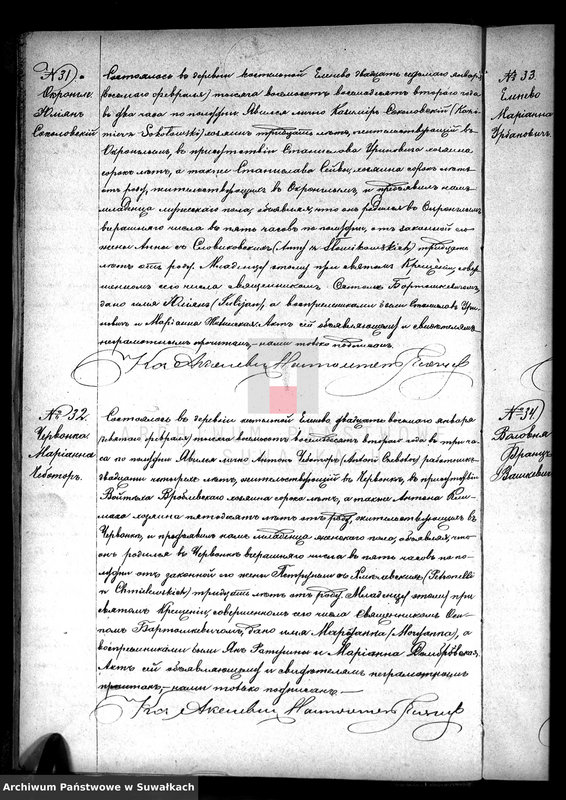 № 31.
Окронгле.
Юлян
Соколовский
Состоялось въ деревни костельной Еленево двадцать седьмаго января
(восьмаго февраля) тысяча восемьсотъ восемьдесятъ втораго года
въ два часа по полудни. Явился лично Казимiръ Соколовскiй (Kazi-
mierz Sokołowski) хозяинъ тридцать лѣтъ, жительствующiй въ
Окронгломъ, въ присутствiи Станислава хозяина
сорокъ лѣтъ, а также Станислава хозяина сорокъ лѣтъ
отъ роду, жительствующихъ въ Окронгломъ, и предъявилъ намъ
младенца мужескаго пола, объявляя, что онъ родился въ Окронгломъ
вчерашняго числа въ пять часовъ по полудни, отъ законной его
жены Анны съ Словиковскихъ (Anny z Słowikowskich) тридцать
лѣтъ отъ роду. Младенцу этому при святомъ Крещенiи, совер-
шенномъ сего числа священникомъ Бартошкевичемъ,
дано имя Юлiянъ (Julijan), а восприемниками были Станиславъ
и Марiанна Актъ сей объявляющему и свидѣтелямъ
неграмотнымъ прочитанъ, нами только подписанъ.
№ 32.
Червонка
Марiанна
Чеботоръ.
Состоялось въ деревни костельной Еленево, двадцать восьмаго января
(девятаго февраля) тысяча восемьсотъ восемьдесятъ втораго года въ три ча-
са по полудни. Явился лично Антонъ Чеботоръ (Antoni Czebotor) работникъ
двадцати четырехъ лѣтъ, жительствующiй въ Червонкѣ, въ присутствiи
Войтѣха Врублевскаго хозяина сорока лѣтъ, а также Антона Кли-
маса хозяина пятидесяти лѣтъ отъ роду, жительствующихъ въ
Червонкѣ, и предъявилъ намъ младенца женскаго пола, объявляя, что
онъ родился въ Червонкѣ вчерашняго числа въ пять часовъ по по-
лудни отъ законной его жены Петрунели съ Хмелевскихъ (Petronelli
z Chmilewskich) тридцать лѣтъ отъ роду. Младенцу этому при
святомъ Крещенiи, совершенномъ сего числа Священникомъ Оси-
помъ Бартошкевичемъ, дано имя Марiанна (Maryanna), а
восприемниками были Янъ Ратушни и Марiанна Домбровская.
Актъ сей объявляющему и свидѣтелямъ неграмотнымъ
прочитанъ, нами только подписанъ.
№ 33.
Еленево
Марiанна
Урбановичъ.
№ 34.
Воловня
Францъ
Вашкевичъ
ARCHIWUM PAŃSTWOWE
SUWAŁKACH
Archiwum Państwowe w Suwałkach